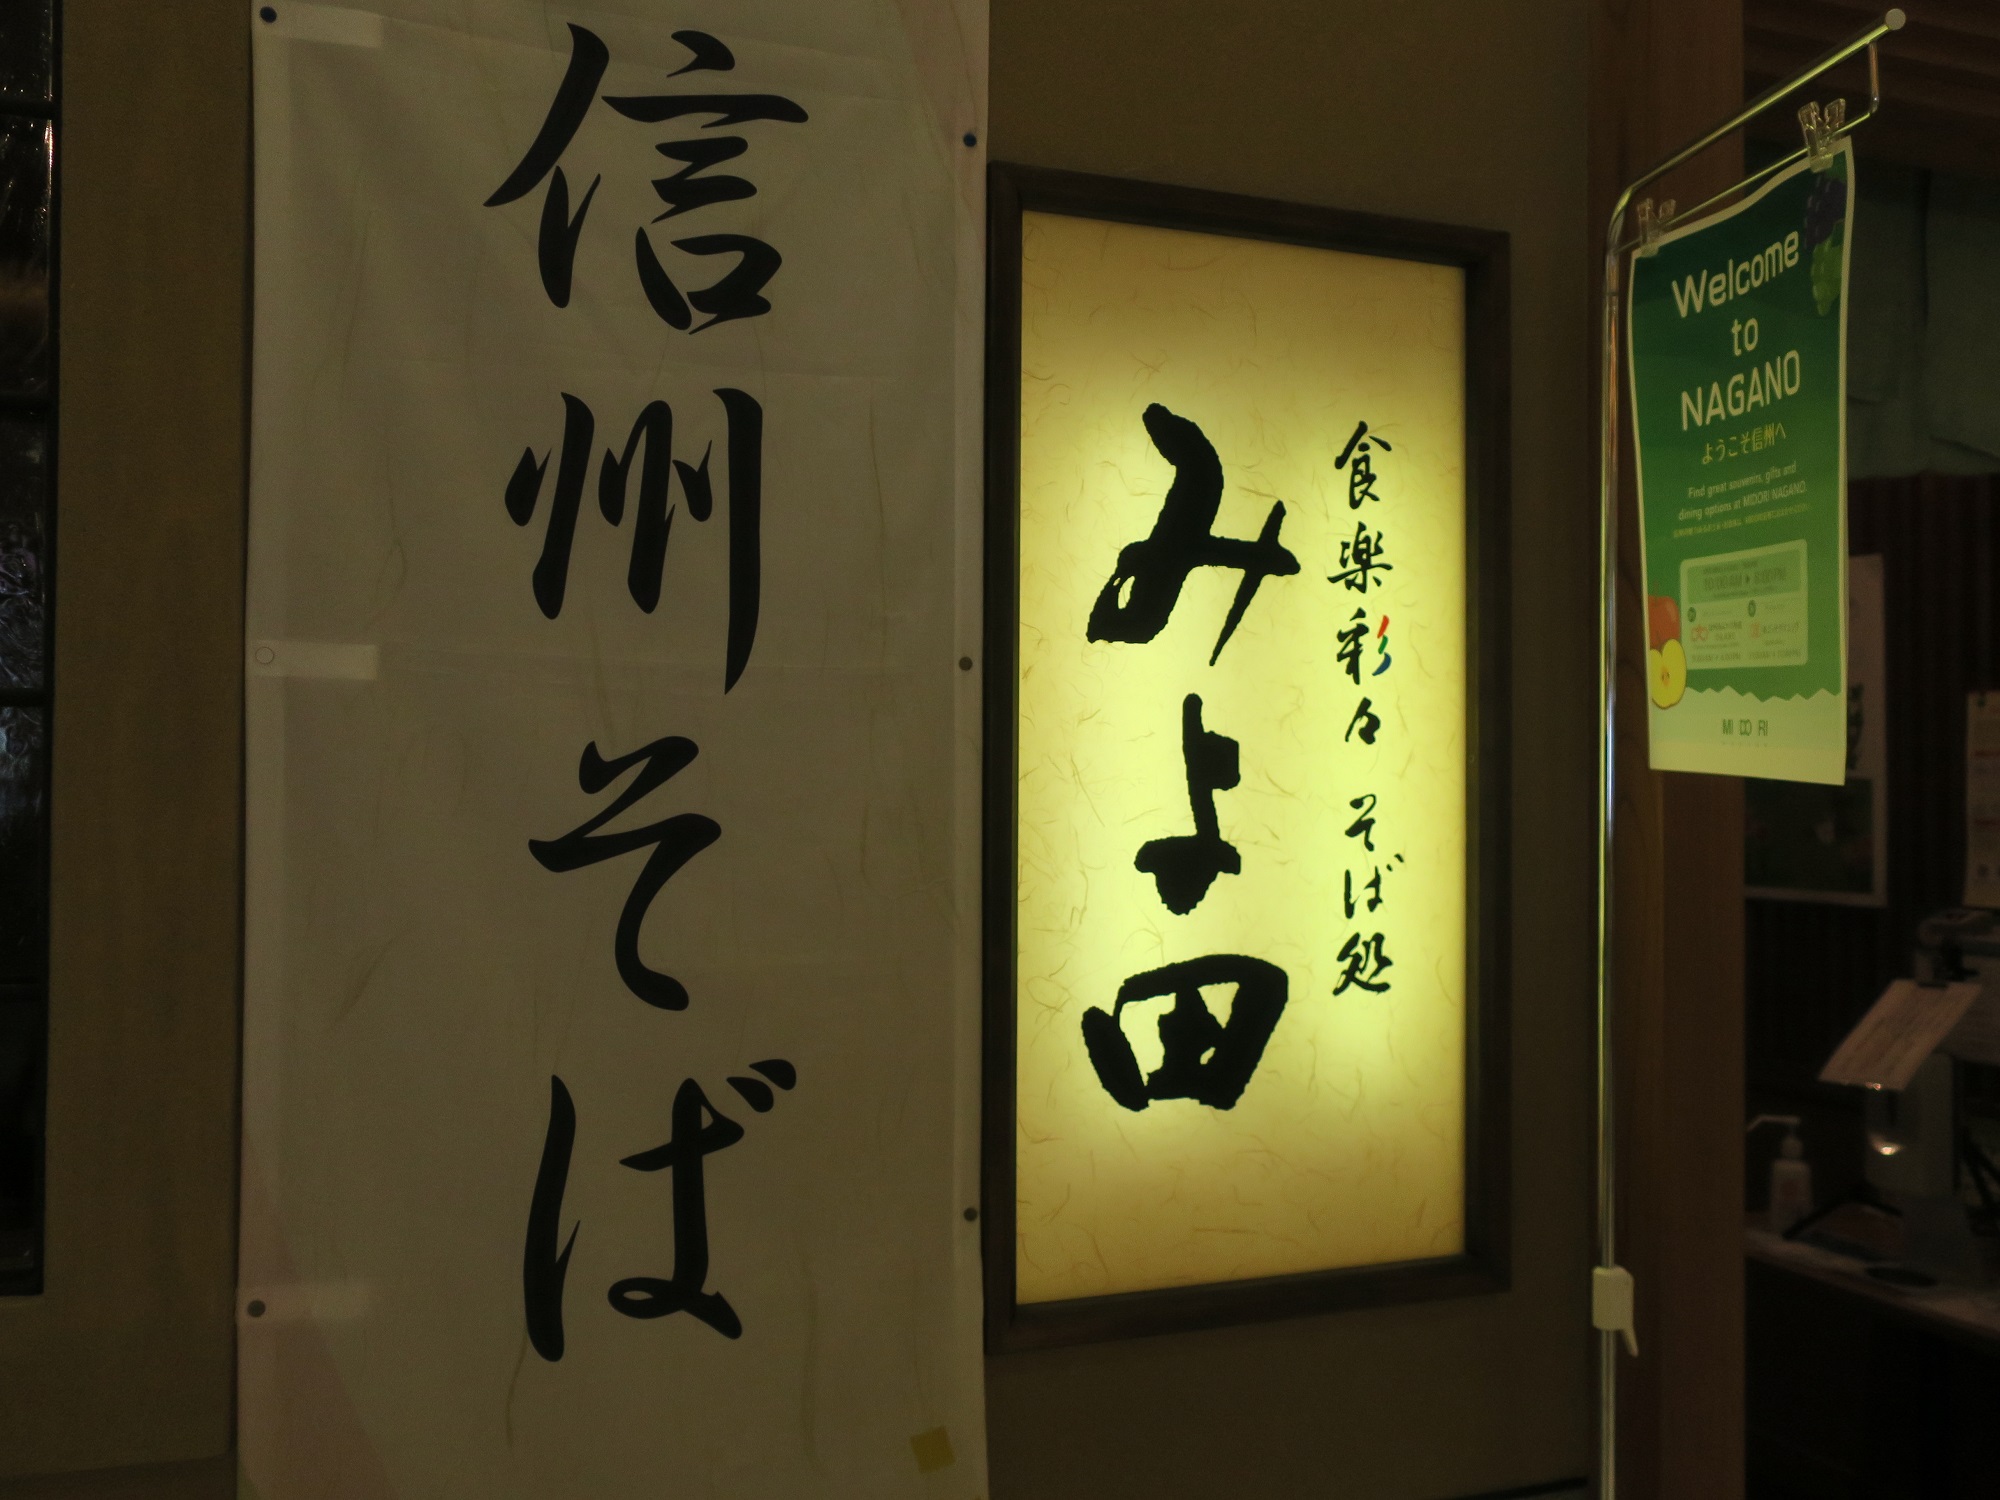 信州そば
食楽彩々 そば処
みよ田
Welcome
to
NAGANO
ようこそ信州へ
Find great souvenirs, gifts and
dining options at MIDORI NAGANO.
MIDORI